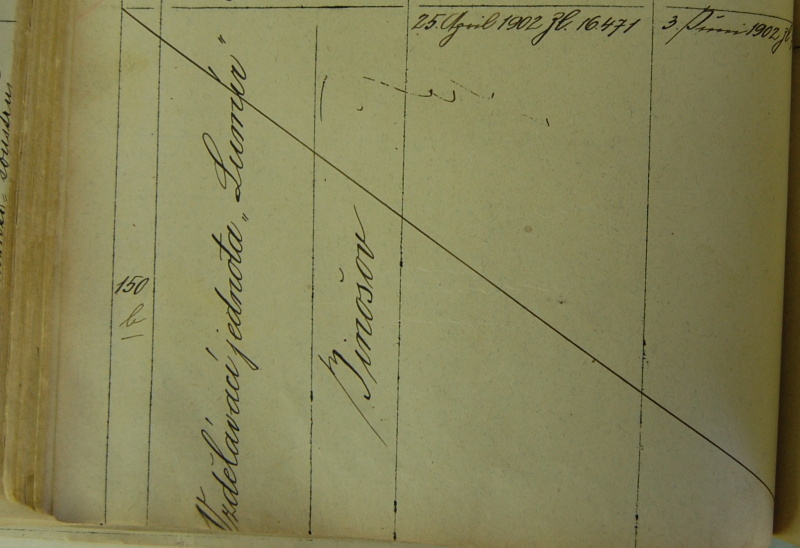 25. April 1902 Zl. 16.471
3. Juni 1902 Zl.
150
b
Vzdělávací jednota „Lumír"
Jinošov